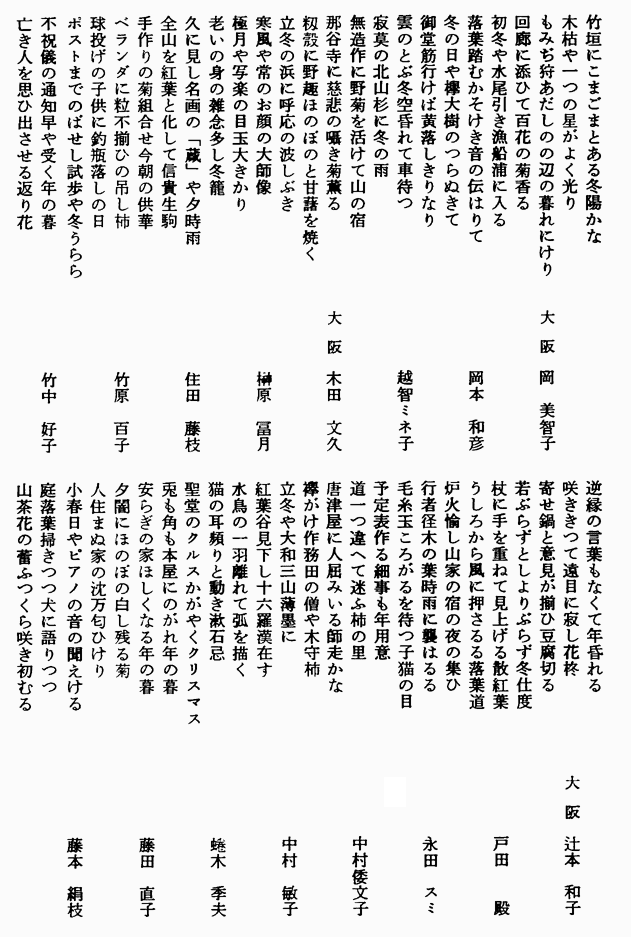 竹垣にこまごまとある冬陽かな
木枯や一つの星がよく光り
もみぢ狩あだしのの辺の暮れにけり
大阪 岡 美智子
回廊に添ひて百花の菊香る
初冬や水尾引き漁船浦に入る
落葉踏むかそけき音の伝はりて
岡本 和彦
冬の日や欅大樹のつらぬきて
御堂筋行けば黄落しきりなり
雲のとぶ冬空昏れて車待つ
越智ミネ子
寂寞の北山杉に冬の雨
無造作に野菊を活けて山の宿
那谷寺に慈悲の囁き菊薫る
大阪 木田 文久
籾殻に野趣ほのぼのと甘藷を焼く
立冬の浜に呼応の波しぶき
寒風や常のお顔の大師像
榊原 冨月
極月や写楽の目玉大きかり
老いの身の雑念多し冬籠
久に見し名画の「蔵」や夕時雨
住田 藤枝
全山を紅葉と化して信貴生駒
手作りの菊組合せ今朝の供華
ベランダに粒不揃ひの吊し柿
竹原 百子
球投げの子供に釣瓶落しの日
ポストまでのばせし試歩や冬うらら
不祝儀の通知早や受く年の暮
竹中 好子
亡き人を思ひ出させる返り花
逆縁の言葉もなくて年昏れる
咲ききつて遠目に寂し花柊
大阪 辻本 和子
寄せ鍋と意見が揃ひ豆腐切る
若ぶらずとしよりぶらず冬仕度
杖に手を重ねて見上げる散紅葉
戸田 殿
うしろから風に押さるる落葉道
炉火愉し山家の宿の夜の集ひ
行者径木の葉時雨に襲はるる
永田 スミ
毛糸玉ころがるを待つ子猫の目
予定表作る細事も年用意
道一つ違へて迷ふ柿の里
中村倭文子
唐津屋に人屈みいる師走かな
襷がけ作務田の僧や木守柿
立冬や大和三山薄墨に
中村 敏子
紅葉谷見下し十六羅漢在す
水鳥の一羽離れて弧を描く
猫の耳頻りと動き漱石忌
蜷木 季夫
聖堂のクルスかがやくクリスマス
兎も角も本屋にのがれ年の暮
安らぎの家ほしくなる年の暮
藤田 直子
夕闇にほのぼの白し残る菊
人住まぬ家の沈万匂ひけり
小春日やピアノの音の聞えける
藤本 絹枝
庭落葉掃きつつ犬に語りつつ
山茶花の蕾ふつくら咲き初むる